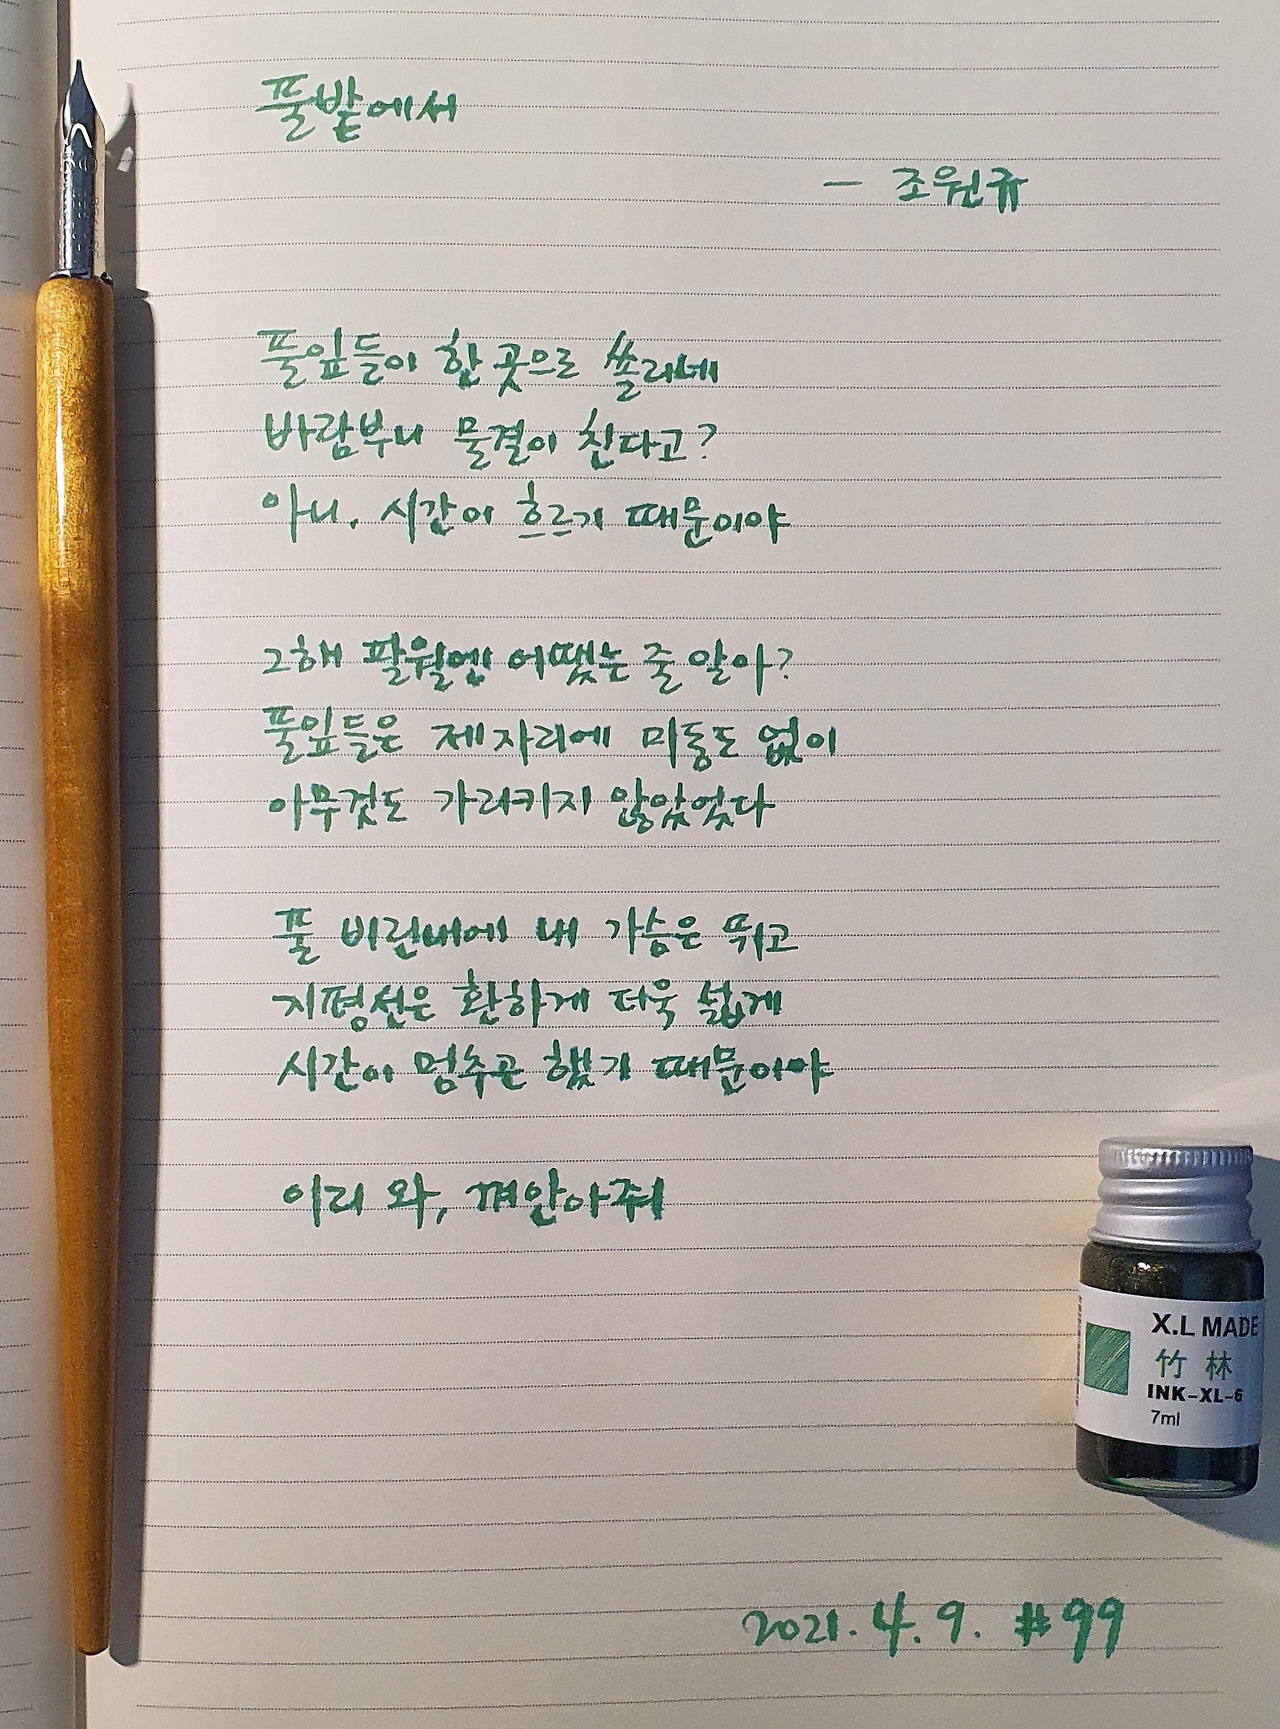 풀밭에서
— 조원규
풀잎들이 한 곳으로 쏠리네
바람부니 물결이 친다고?
아니, 시간이 흐르기 때문이야
그해 팔월엔 어땠는 줄 알아?
풀잎들은 제자리에 미동도 없이
아무것도 가리키지 않았었다
풀 비린내에 내 가슴은 뛰고
지평선은 환하게 더욱 넓게
시간이 멈추곤 했기 때문이야
이리 와, 껴안아줘
X.L MADE
竹林
INK-XL-6
7ml
2021. 4. 9. #99